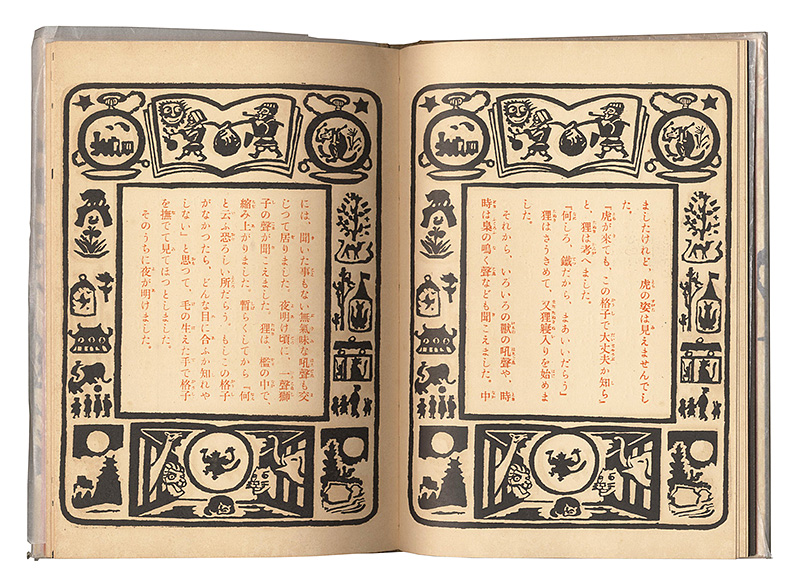 ましたけれど、虎の姿は見えませんでし
た。
「虎が来ても、この格子で大丈夫か知ら」
と、狸は考へました。
「何しろ、鐵だから、まあいいだらう」
狸はさうきめて、又狸寝入りを始めま
した。
それから、いろいろの獣の吼聲や、時
時は梟の鳴く聲なども聞こえました。中
には、聞いた事もない無氣味な吼聲も交
じつて居りました。夜明け頃に、一聲獅
子の聲が聞こえました。狸は、檻の中で、
縮み上がりました。暫らくしてから「何
と云ふ恐ろしい所だらう。もしこの格子
がなかつたら、どんな目に合ふか知れや
しない」と思つて、毛の生えた手で格子
を撫でて見てほつとしました。
そのうちに夜が明けました。